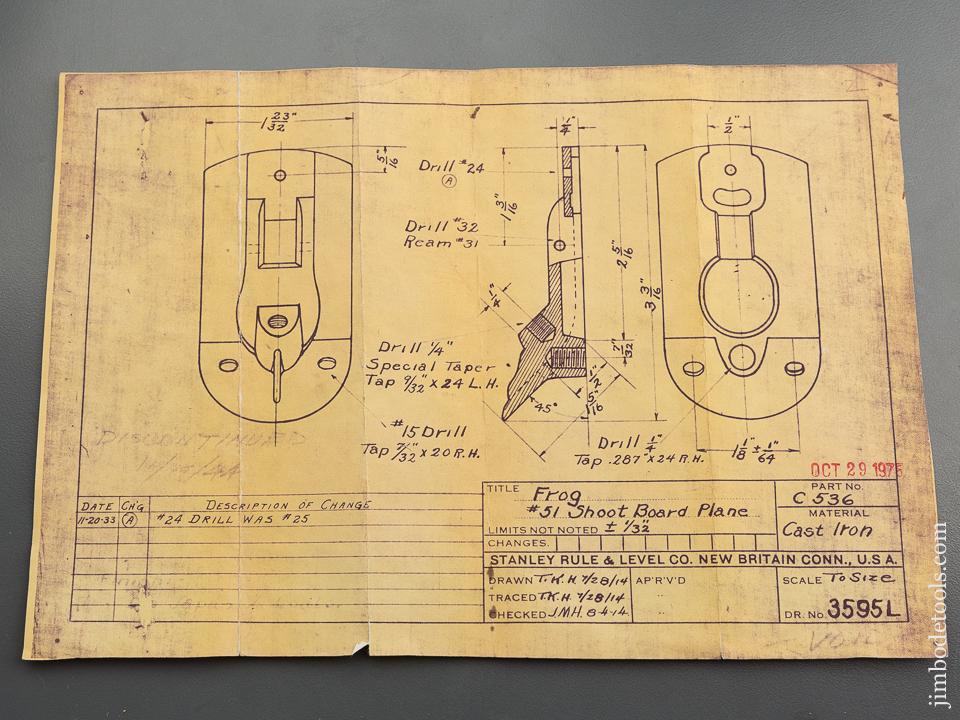 1 23/32"
5/16"
Drill #24
(A)
Drill #32
Ream #31
1/4"
1 3/16"
2 5/16"
3 3/16"
1/4"
7/32"
1/2"
1 5/16"
45°
1/2"
Drill 1/4"
Special Taper
Tap 9/32" x 24 L.H.
#15 Drill
Tap 7/32" x 20 R.H.
Drill 1/4"
Tap .287" x 24 R.H.
1 1/8" ± 1/64"
DISCONTINUED
OCT 29 1975
DATE CH'G DESCRIPTION OF CHANGE
11-20-33 (A) #24 DRILL WAS #25
TITLE Frog
#51 Shoot Board Plane
LIMITS NOT NOTED ± 1/32"
CHANGES.
PART No.
C 536
MATERIAL
Cast Iron
STANLEY RULE & LEVEL CO. NEW BRITAIN CONN., U.S.A.
DRAWN T.K.H. 7/28/14 AP'R'V'D
TRACED T.K.H. 7/28/14
CHECKED J.M.H. 8-4-14
SCALE To Size
DR. No. 3595L
VOID
jimbodetools.com